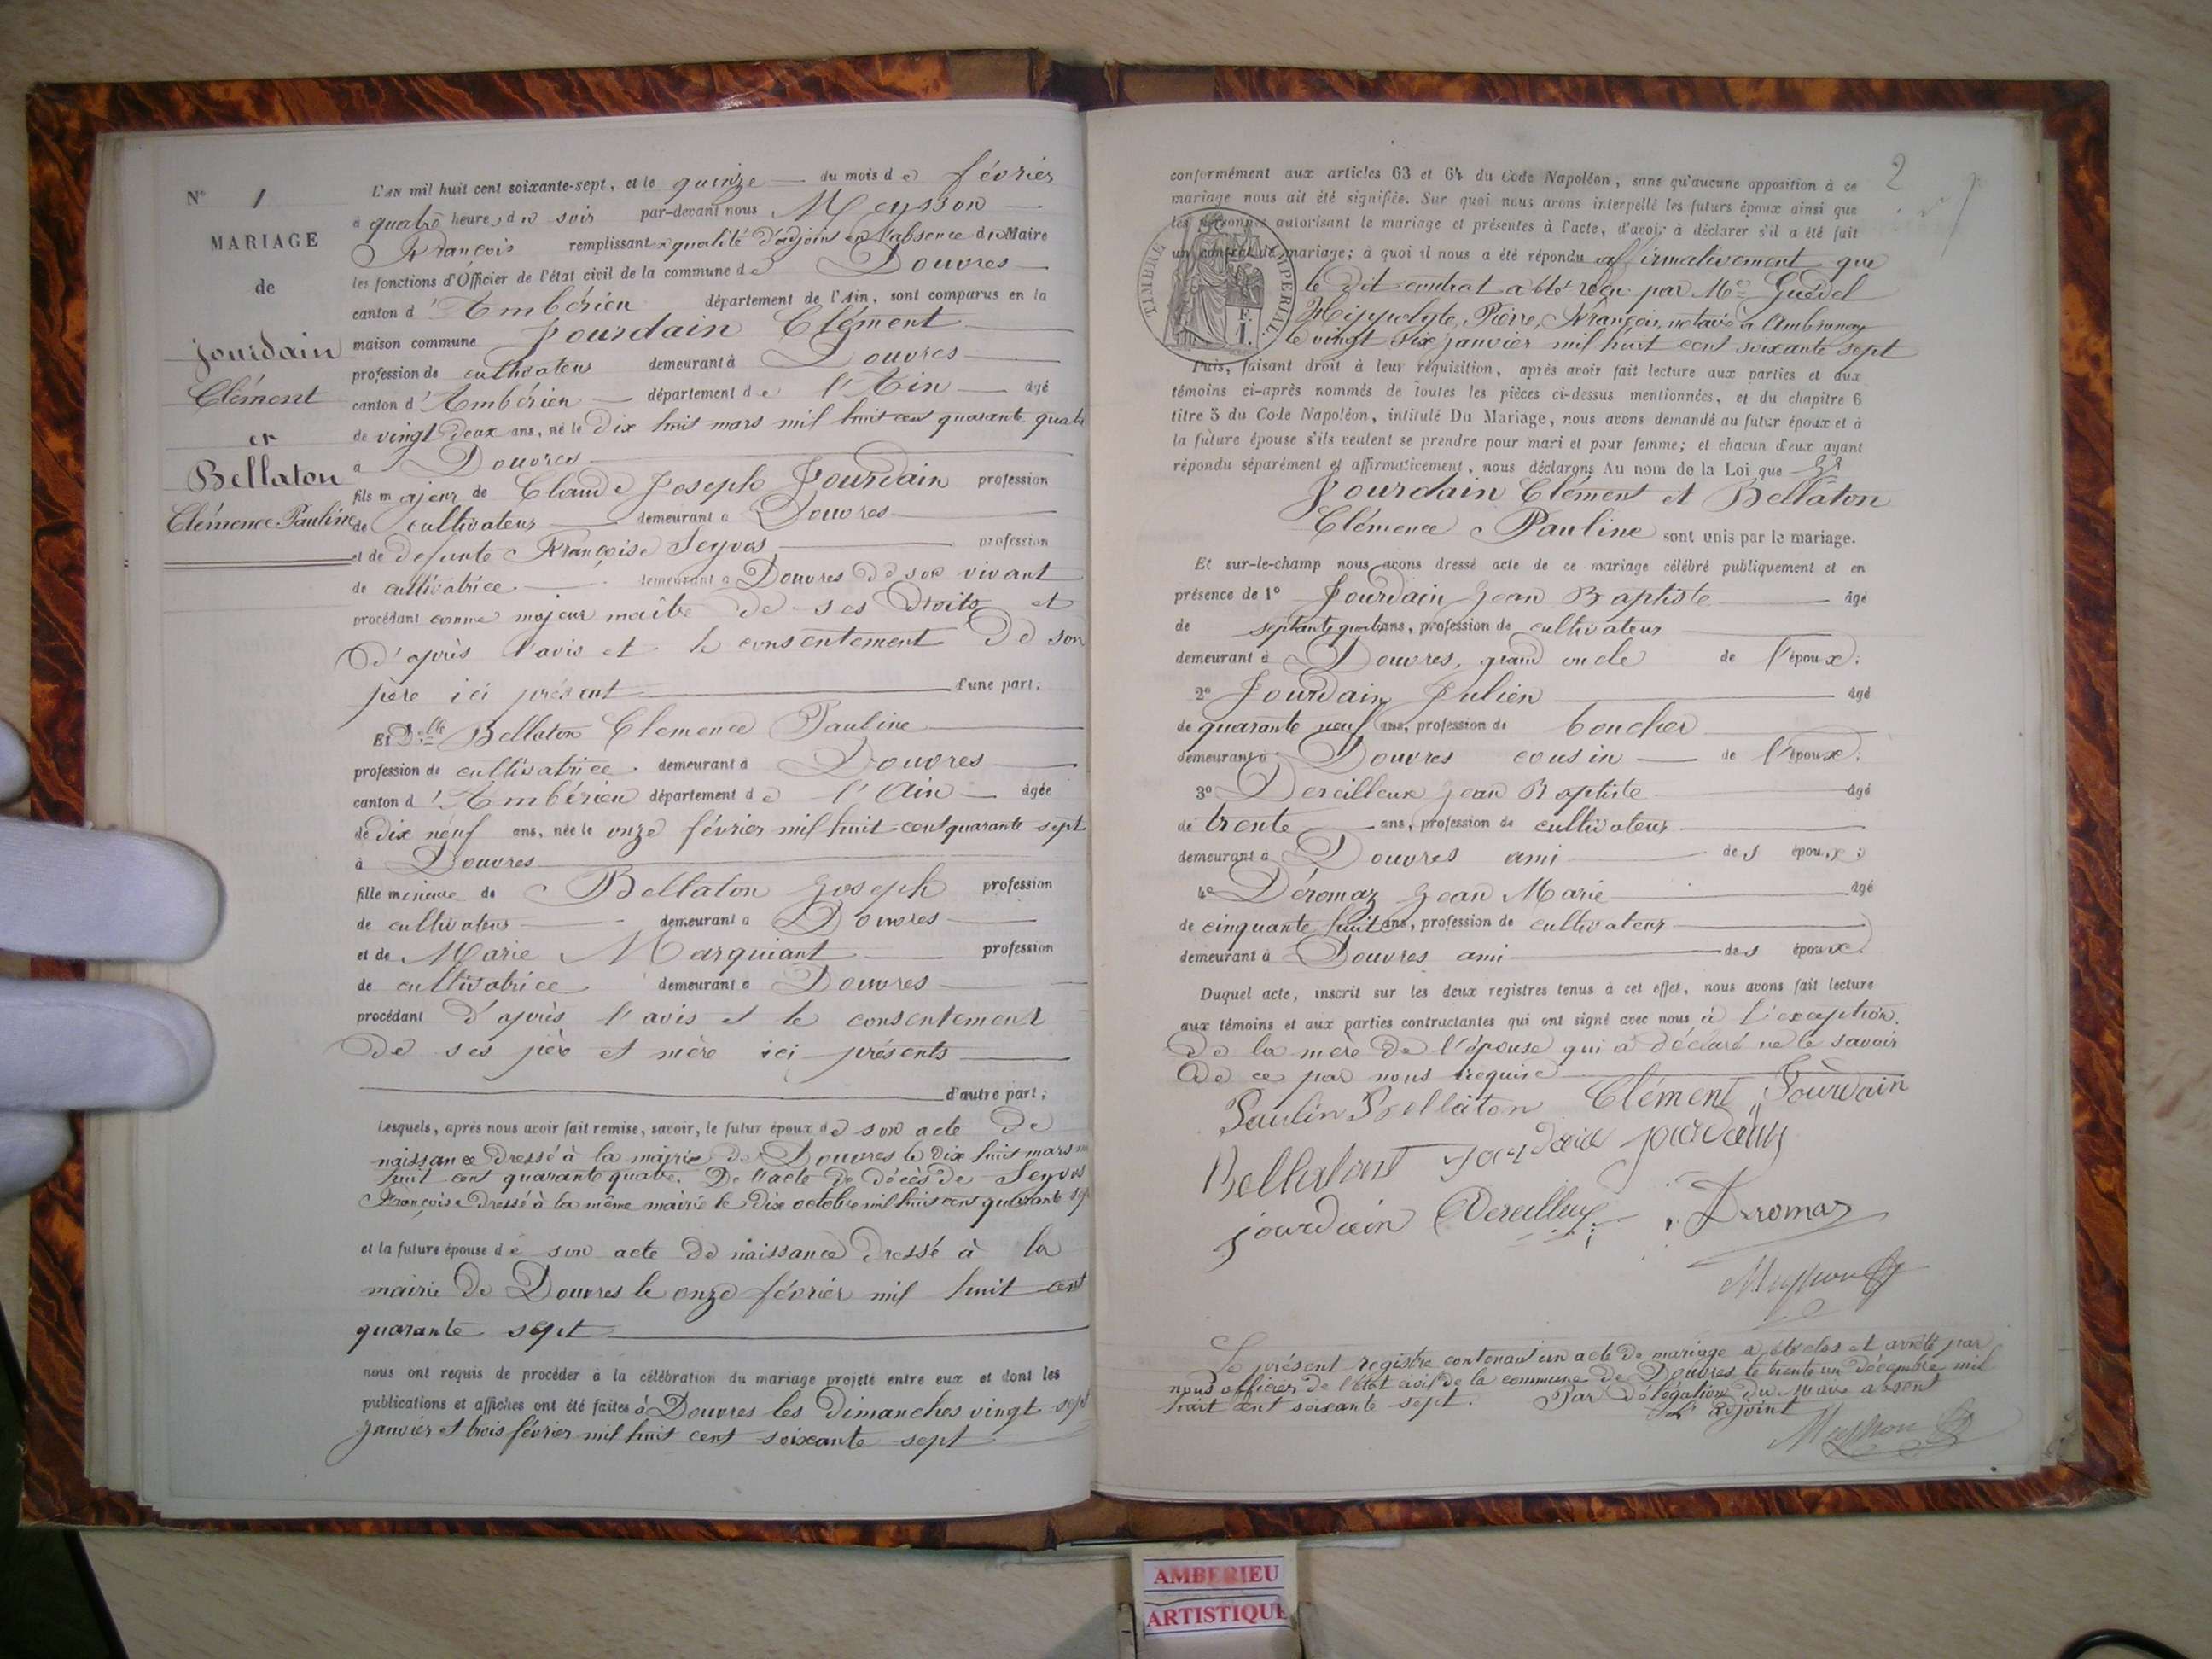 N° 1
MARIAGE
de
Jourdain
Clément
et
Bellaton
Clémence Pauline
L'AN mil huit cent soixante-sept, et le quinze du mois de février
à quatre heures du soir par-devant nous Meysson
François remplissant en qualité d'adjoint en l'absence du Maire
les fonctions d'Officier de l'état civil de la commune de Douvres
canton d'Ambérieu département de l'Ain, sont comparus en la
maison commune Jourdain Clément
profession de cultivateur demeurant à Douvres
canton d'Ambérieu département de l'Ain âgé
de vingt deux ans, né le dix huit mars mil huit cent quarante quatre
à Douvres
fils majeur de Claude Joseph Jourdain profession
de cultivateur demeurant à Douvres
et de défunte Françoise Seyvos profession
de cultivatrice demeurant à Douvres de son vivant
procédant comme majeur maître de ses droits et
d'après l'avis et le consentement de son
père ici présent d'une part.
Et Delle Bellaton Clemence Pauline
profession de cultivatrice demeurant à Douvres
canton d'Ambérieu département de l'Ain âgée
de dix neuf ans, née le onze février mil huit cent quarante sept
à Douvres
fille mineure de Bellaton Joseph profession
de cultivateur demeurant à Douvres
et de Marie Marguiant profession
de cultivatrice demeurant à Douvres
procédant d'après l'avis et le consentement
de ses père et mère ici présents
d'autre part;
Lesquels, après nous avoir fait remise, savoir, le futur époux de son acte de
naissance dressé à la mairie de Douvres le dix huit mars m
huit cent quarante quatre. De l'acte de décès de Seyvos
Françoise dressé à la même mairie le dix octobre mil huit cent quarante sep
et la future épouse de son acte de naissance dressé à la
mairie de Douvres le onze février mil huit cent
quarante sept
nous ont requis de procéder à la célébration du mariage projeté entre eux et dont les
publications et affiches ont été faites à Douvres les dimanches vingt sept
janvier et trois février mil huit cent soixante sept
2
conformément aux articles 63 et 64 du Code Napoléon, sans qu'aucune opposition à ce
mariage nous ait été signifiée. Sur quoi nous avons interpellé les futurs époux ainsi que
les personnes autorisant le mariage et présentes à l'acte, d'avoir à déclarer s'il a été fait
un contrat de mariage; à quoi il nous a été répondu affirmativement que
le dit contrat a été reçu par Me Guédel
Hippolyte, Pierre, François, notaire à Ambronay
le vingt six janvier mil huit cent soixante sept
TIMBRE IMPERIAL.
F.
1.
Puis, faisant droit à leur réquisition, après avoir fait lecture aux parties et aux
témoins ci-après nommés de toutes les pièces ci-dessus mentionnées, et du chapitre 6
titre 5 du Code Napoléon, intitulé Du Mariage, nous avons demandé au futur époux et à
la future épouse s'ils veulent se prendre pour mari et pour femme; et chacun d'eux ayant
répondu séparément et affirmativement, nous déclarons Au nom de la Loi que
Jourdain Clément et Bellaton
Clémence Pauline sont unis par le mariage.
Et sur-le-champ nous avons dressé acte de ce mariage célébré publiquement et en
présence de 1° Jourdain Jean Baptiste âgé
de septante quatre ans, profession de cultivateur
demeurant à Douvres, grand oncle de l'époux;
2° Jourdain Julien âgé
de quarante neuf ans, profession de boucher
demeurant à Douvres cousin de l'époux;
3° Dereilleux Jean Baptiste âgé
de trente ans, profession de cultivateur
demeurant à Douvres ami des époux;
4° Déromaz Jean Marie âgé
de cinquante huit ans, profession de cultivateur
demeurant à Douvres ami des époux.
Duquel acte, inscrit sur les deux registres tenus à cet effet, nous avons fait lecture
aux témoins et aux parties contractantes qui ont signé avec nous à l'exception
de la mère de l'épouse qui a déclaré ne le savoir
de ce par nous requise
Paulin Bellaton Clément Jourdain
Bellaton Jourdain jourdain
jourdain Dereilleux Deromaz
Meysson
Le présent registre contenant un acte de mariage a été clos et arrêté par
nous officier de l'état civil de la commune de Douvres le trente un décembre mil
huit cent soixante sept. Par délégation du maire absent
L'adjoint
Meysson
AMBERIEU
ARTISTIQUE